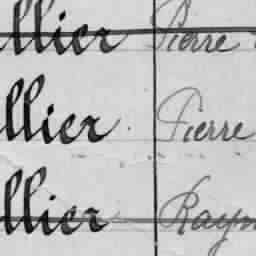 llier Pierre
llier Pierre
llier Raym